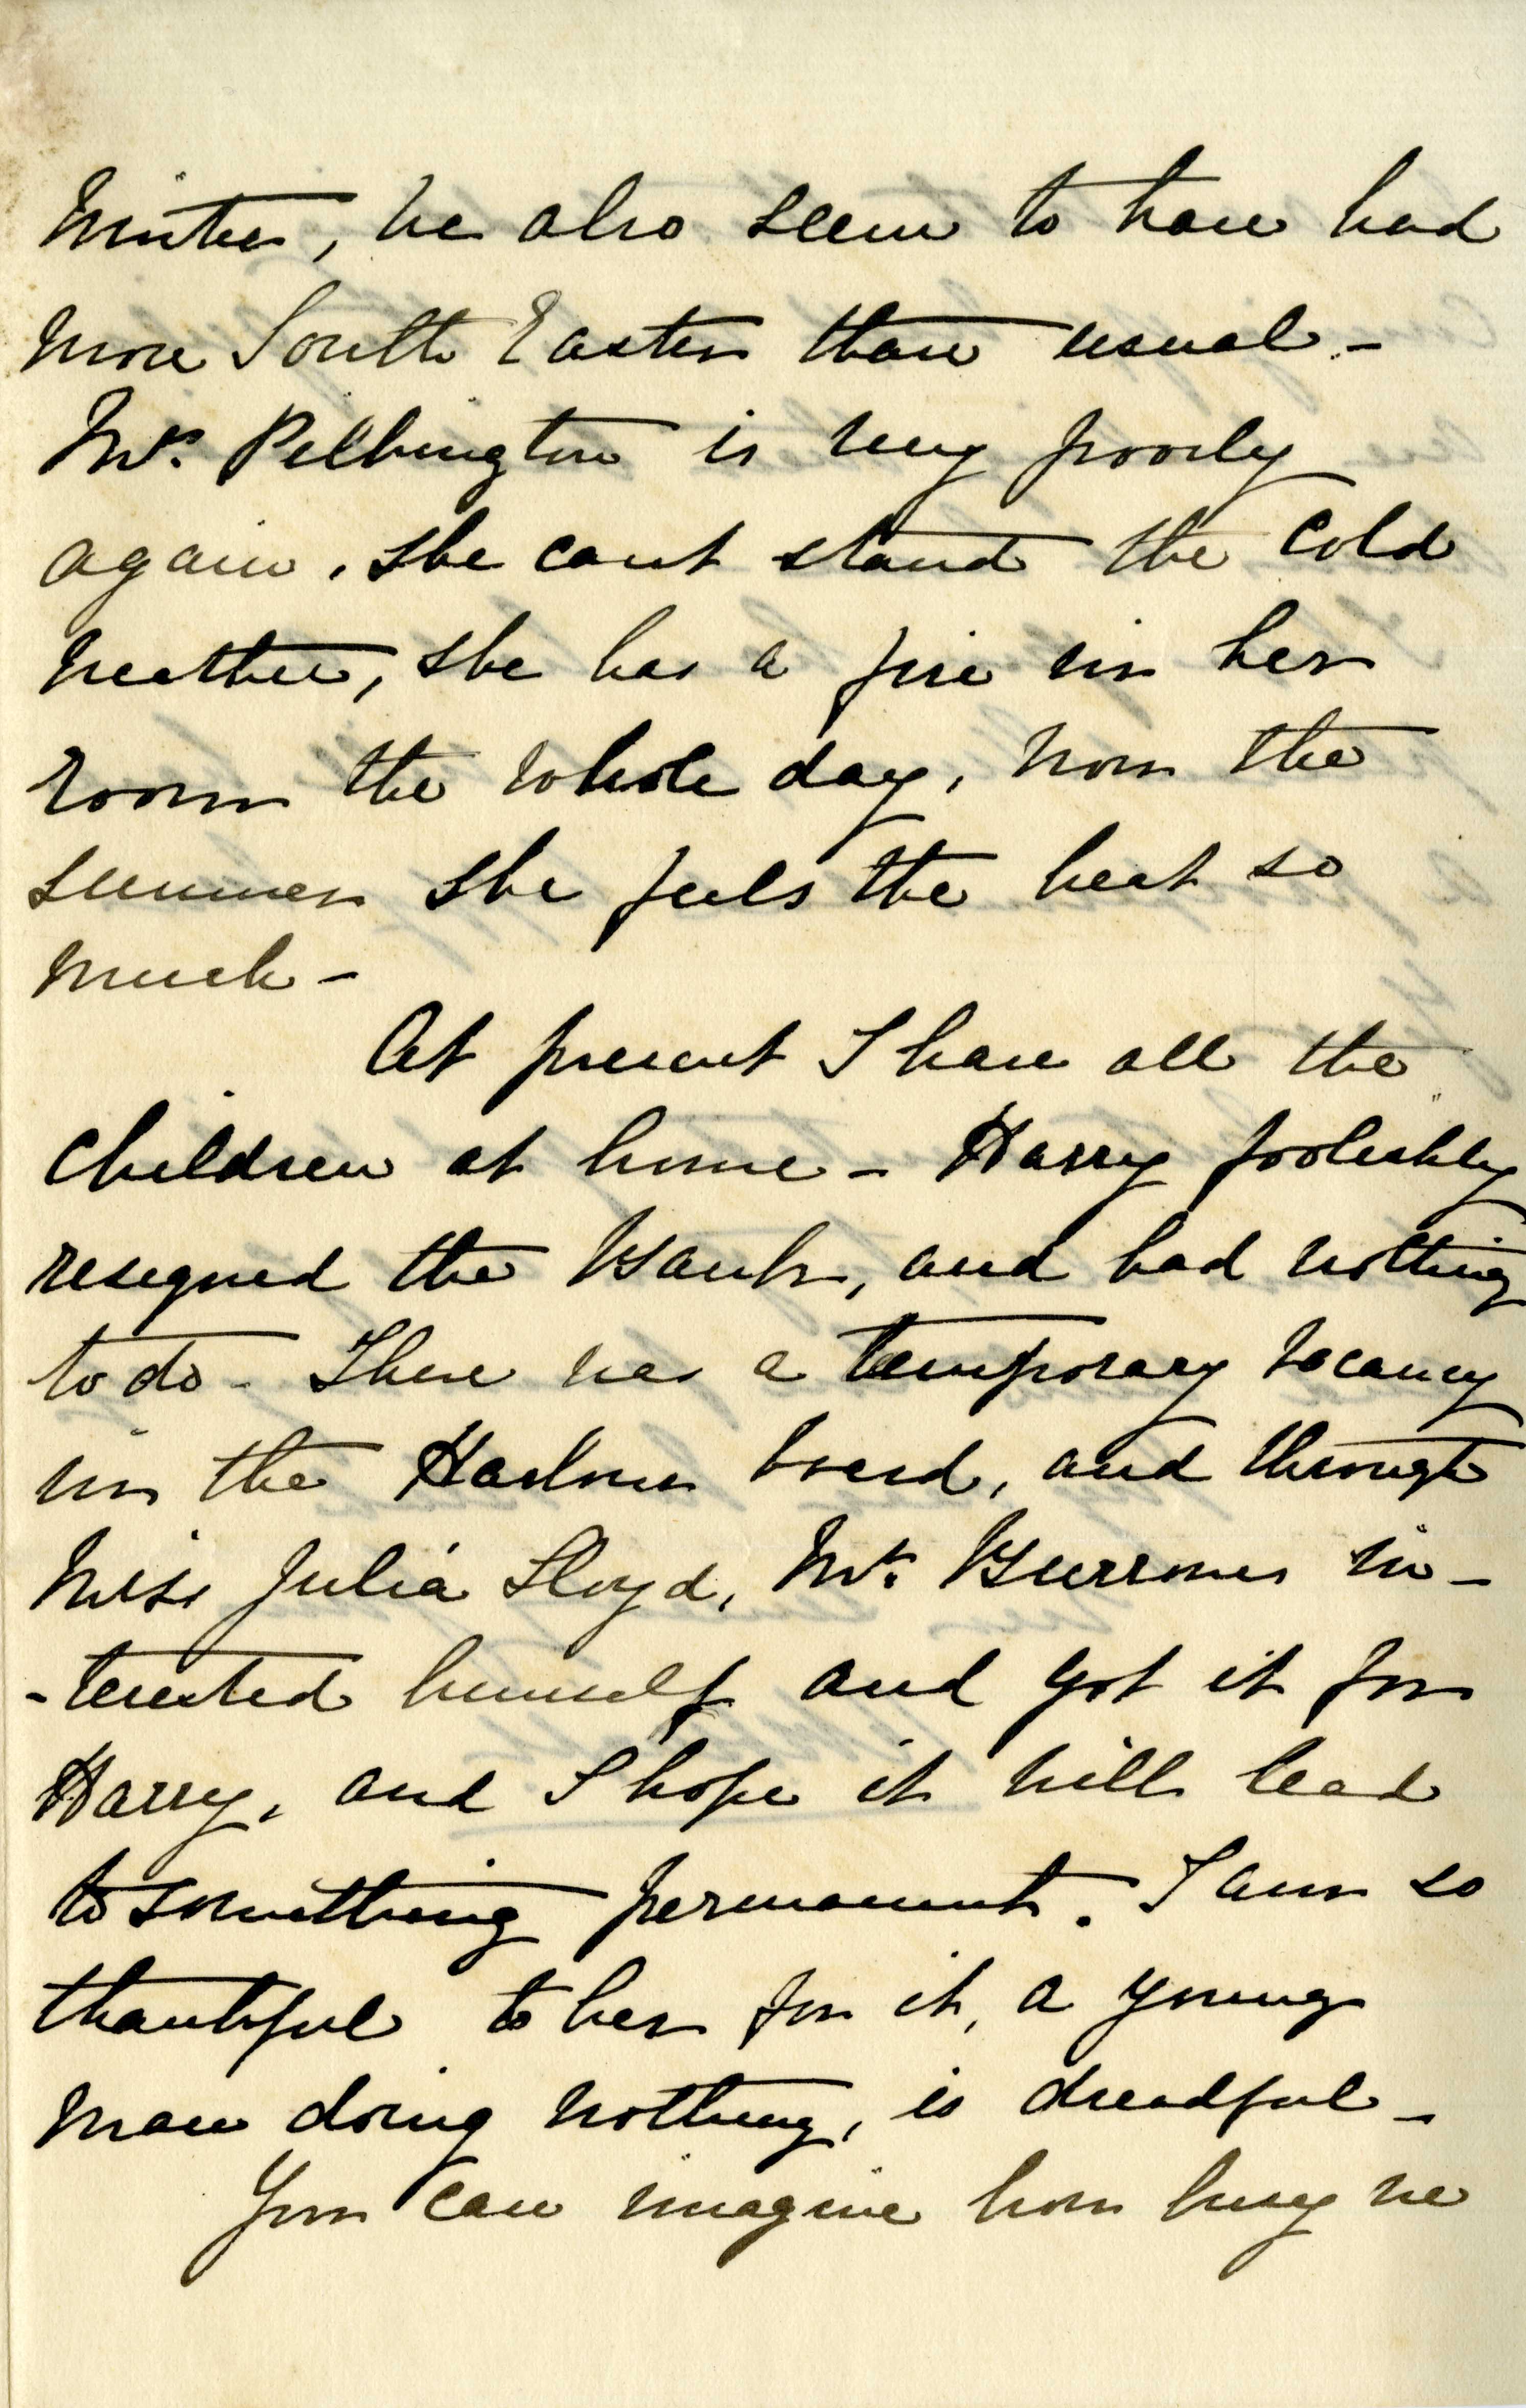 Winter, we also seem to have had
more South Easters than usual -
Mrs. Pilkington is very poorly
again. She cant stand the cold
weather, she has a fire in her
room the whole day, now the
summer she feels the heat so
much -
At present I have all the
children at home - Harry foolishly
resigned the Bank, and had nothing
to do - There was a temporary vacancy
in the Harbour board, and through
Miss Julia Lloyd, Mr. Burrowes in-
-terested himself and got it for
Harry, and I hope it will lead
to something permanent. I am so
thankful to her for it, a young
man doing nothing, is dreadful -
You can imagine how busy we